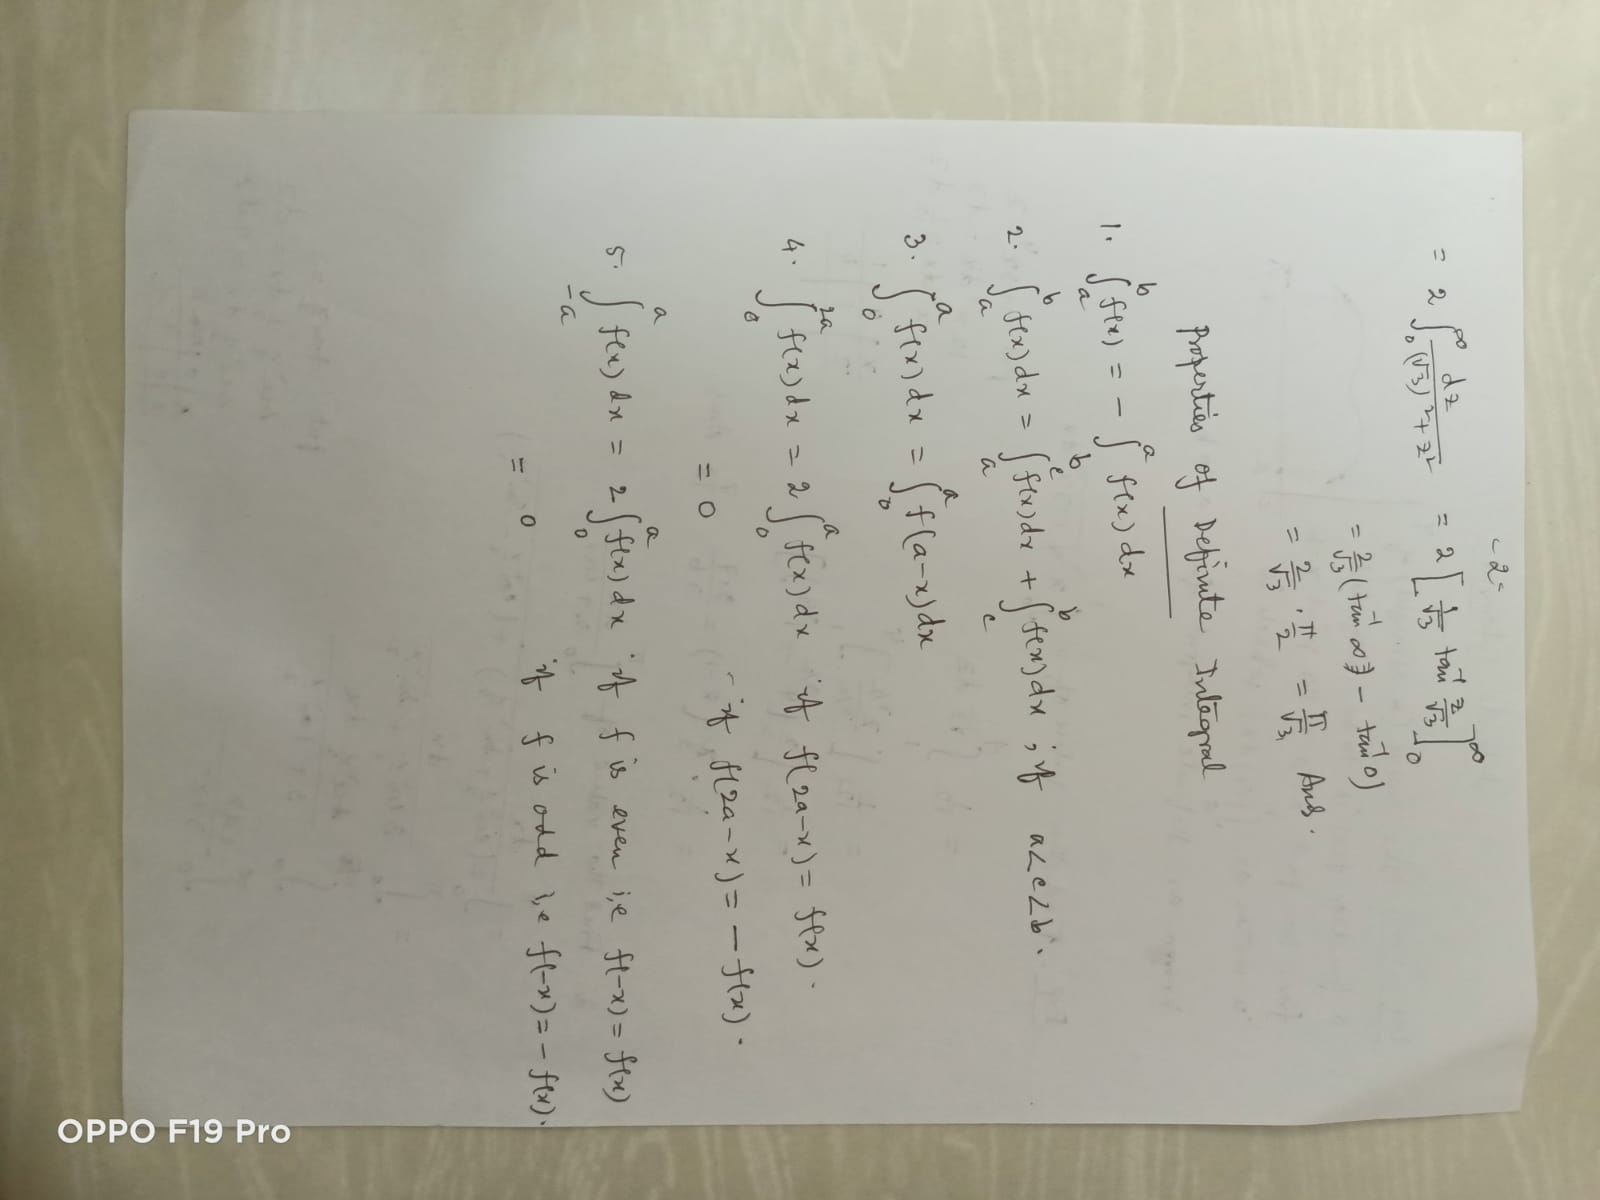 -2-
= 2 ∫₀^∞ dz/((√3)²+z²) = 2 [1/√3 tan⁻¹ z/√3]₀^∞
= 2/√3 (tan⁻¹ ∞ - tan⁻¹ 0)
= 2/√3 · π/2 = π/√3 Ans.
Properties of Definite Integral
1. ∫ₐᵇ f(x) = - ∫_b^a f(x) dx
2. ∫ₐᵇ f(x) dx = ∫ₐᶜ f(x) dx + ∫_c^b f(x) dx ; if a<c<b.
3. ∫₀ᵃ f(x) dx = ∫₀ᵃ f(a-x) dx
4. ∫₀^2a f(x) dx = 2 ∫₀ᵃ f(x) dx if f(2a-x) = f(x).
= 0 if f(2a-x) = - f(x).
5. ∫_-a^a f(x) dx = 2 ∫₀ᵃ f(x) dx if f is even i,e f(-x) = f(x)
= 0 if f is odd i,e f(-x) = - f(x).
OPPO F19 Pro